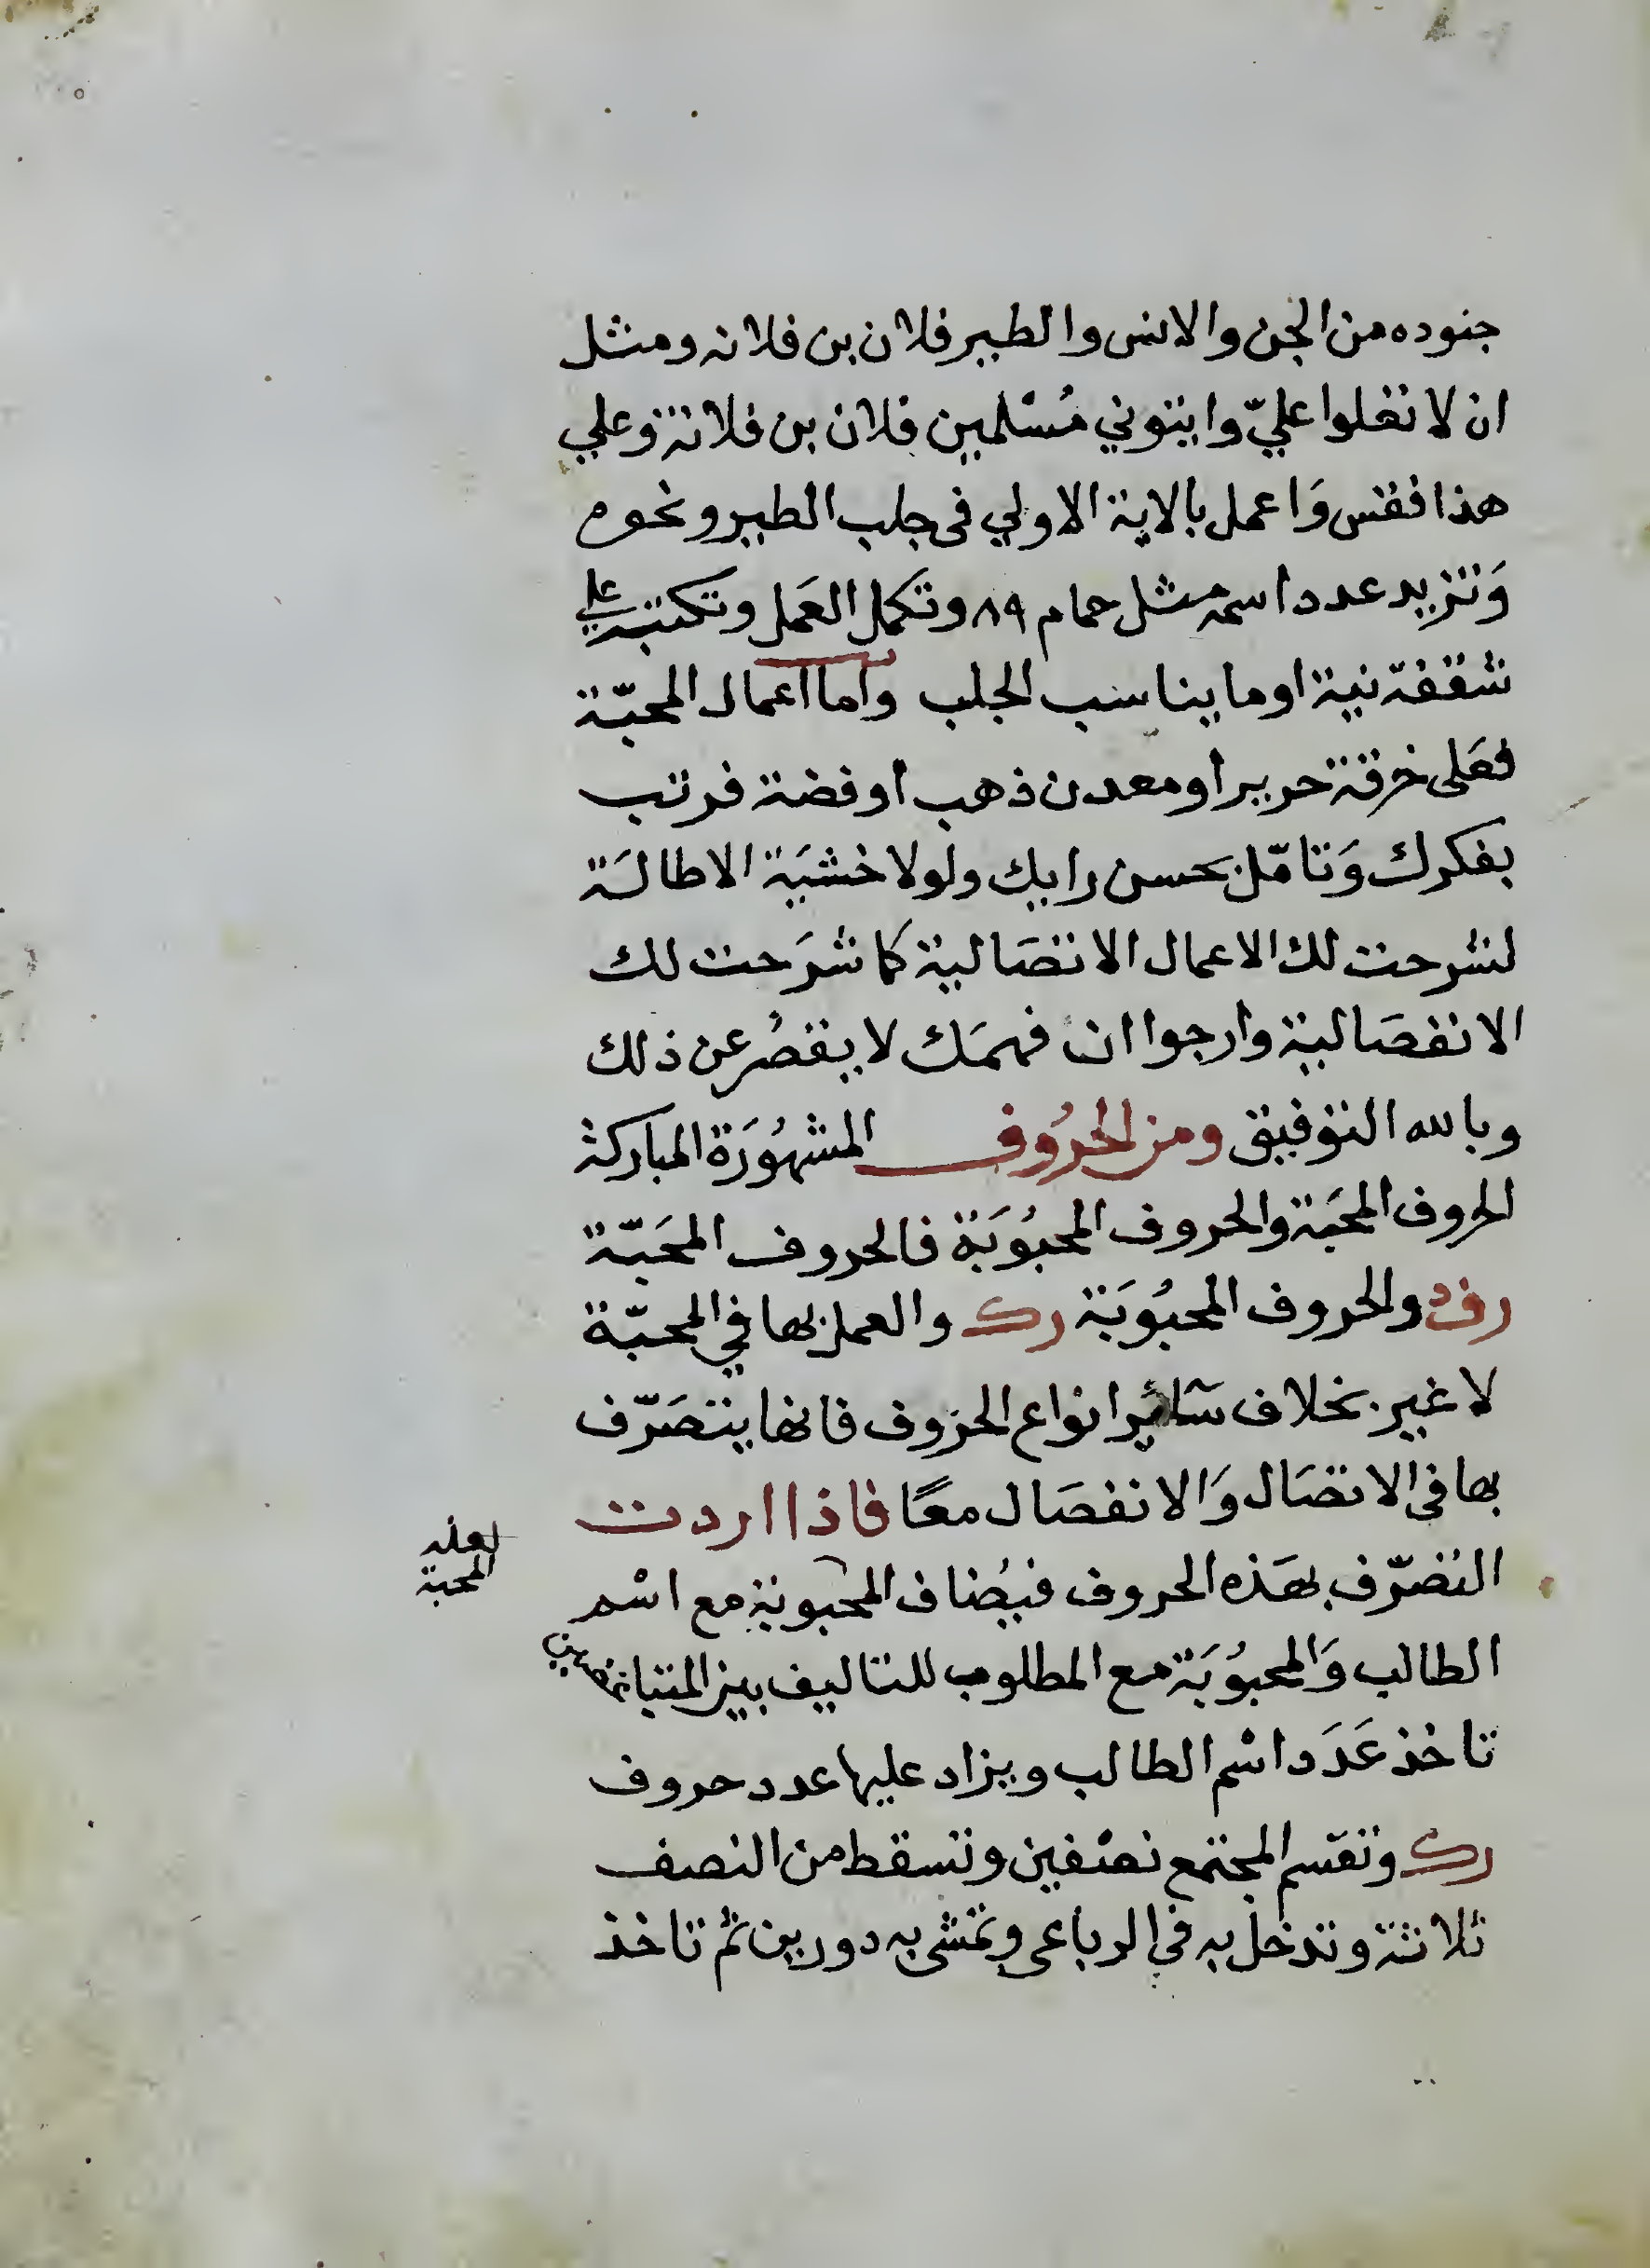 جنوده من الجن والانس والطير فلان بن فلانه ومثل
ان لا تعلوا عليّ وايتوني مُسْلمين فلان بن فلانة وعلي
هذا فقس وَاعمل بالاية الاولي في جلب الطير ونحوه
وَتزيد عدد اسمه مثل حمام ٨٩ وتكمل العَمل وتكتبه علي
شقفة نية او ما يناسب الجلب وأما اعمال المحبّة
فعَلى خرقة حرير أو معدن ذهب أو فضة فرتب
بفكرك وَتامّل بحسن رايك ولولا خشيَة الاطالَة
لشرحت لك الاعمال الاتصَالية كما شرَحت لك
الانفصَالية وارجوا ان فهمَك لا يقصُر عن ذلك
وبالله التوفيق ومن الحرُوف المشهُورَة المباركة
الحروف المحَبة والحروف المحبُوبَة فالحروف المَحَبّة
رفد والحروف المحبُوبَة رك والعمل بها في المحبّة
لا غير بخلاف سآئر انواع الحرُوف فانها يتصَرّف
بها في الاتصَال وَالانفصَال معًا فاذا اردت
التصَرّف بهَذه الحروف فيُضاف المحبوبة مع اسْم
لعله
المحبة
الطالب وَالمحبوُبَة مع المطلوب للتاليف بين المتباغضين
تاخذ عَدَد اسْم الطالب ويزاد عليها عدد حروف
رك وتقسم المجتمع نصْفين وتسقط من النصف
ثلاثة وتدخل به في الرباعي وتمشي به دورين ثم تاخذ